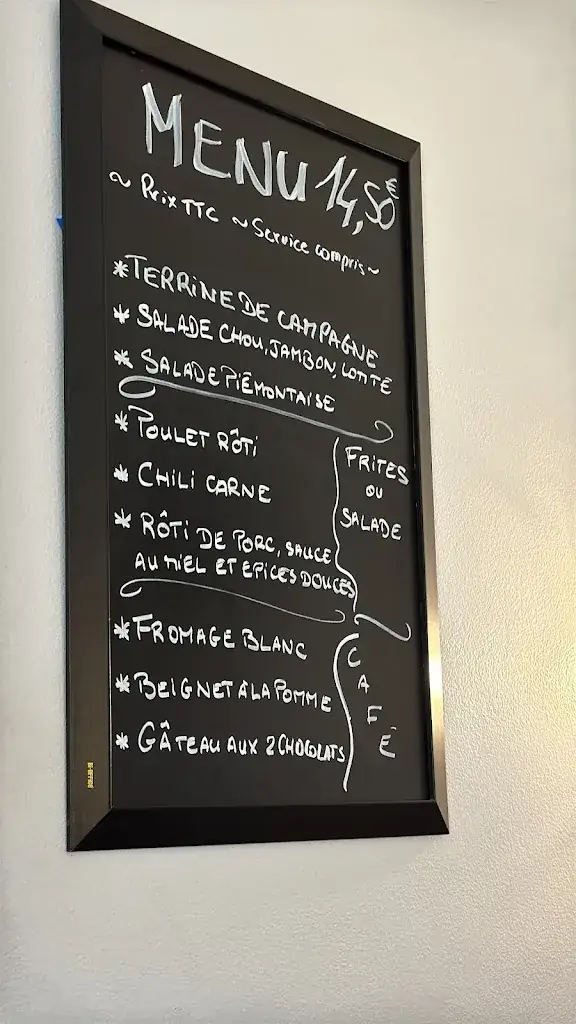 MENU 14,50€
~ Prix TTC ~ Service compris ~
* TERRINE DE CAMPAGNE
* SALADE CHOU, JAMBON, COMTÉ
* SALADE PIÉMONTAISE
* POULET RÔTI
* CHILI CARNE
* RÔTI DE PORC, SAUCE
AU MIEL ET EPICES DOUCES
FRITES
OU
SALADE
* FROMAGE BLANC
* BEIGNET À LA POMME
* GÂTEAU AUX 2 CHOCOLATS
CAFÉ